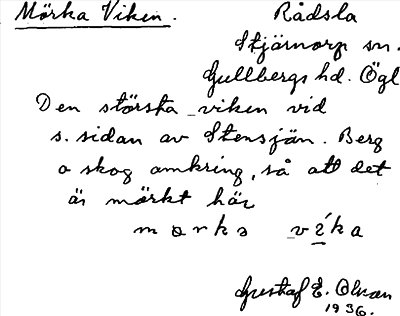 Mörka Viken. Rådsla
Stjärnorp sn.
Gullbergs hd. Ögl
Den största viken vid
s. sidan av Stensjön. Berg
o skog omkring, så att det
är mörkt här
mørka víka
Gustaf E. Olsson
1936.